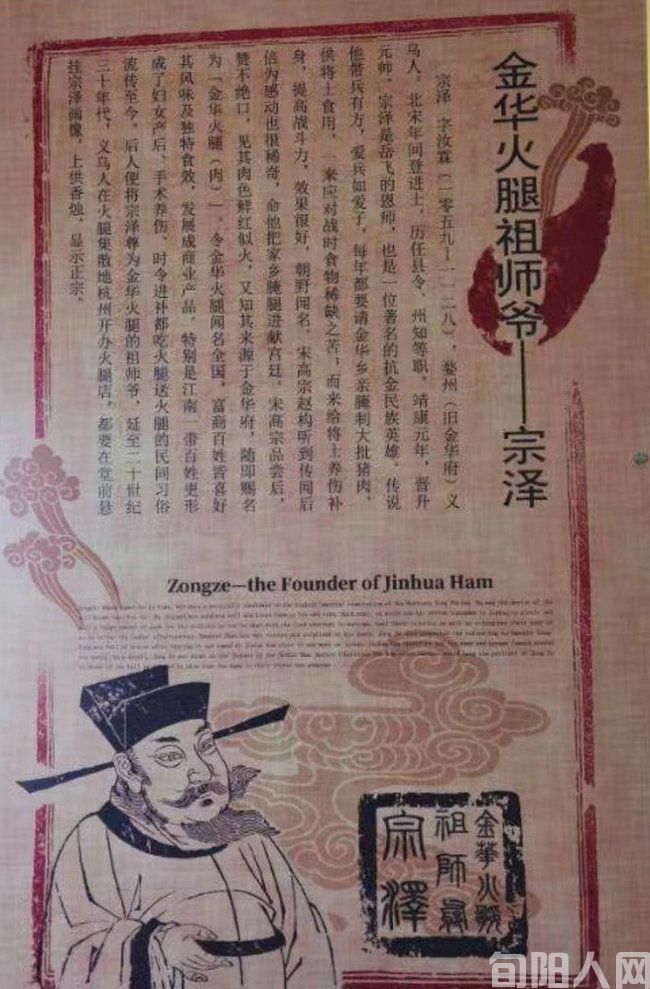 金华火腿祖师爷——宗泽
宗泽，字汝霖（一〇五九—一一二八），婺州（旧金华府）义
乌人。北宋年间登进士，历任县令、州知等职，靖康元年，晋升
元帅。宗泽是岳飞的恩师，也是一位著名的抗金民族英雄。传说
他带兵有方，爱兵如爱子，每年都要请金华乡亲腌制大批猪肉，
供将士食用，一来应对战时食物稀缺之苦；而来给将士养伤补
身，提高战斗力，效果很好，朝野闻名。宋高宗赵构听到传闻后
倍为感动也很稀奇，命他把家乡腌腿进献宫廷。宋高宗品尝后，
赞不绝口，见其肉色鲜红似火，又知其来源于金华府，随即赐名
为「金华火腿（肉）」。令金华火腿闻名全国，富商百姓皆喜好
其风味及独特食效，发展成商业产品，特别是江南一带百姓更形
成了妇女产后、手术养伤、时令进补都吃火腿送火腿的民间习俗
流传至今。后人便将宗泽尊为金华火腿的祖师爷，延至二十世纪
三十年代，义乌人在火腿集散地杭州开办火腿店，都要在堂前悬
挂宗泽画像，上供香烛，显示正宗。
Zongze—the Founder of Jinhua Ham
金華火腿
祖師爺
宗澤
旬阳人网